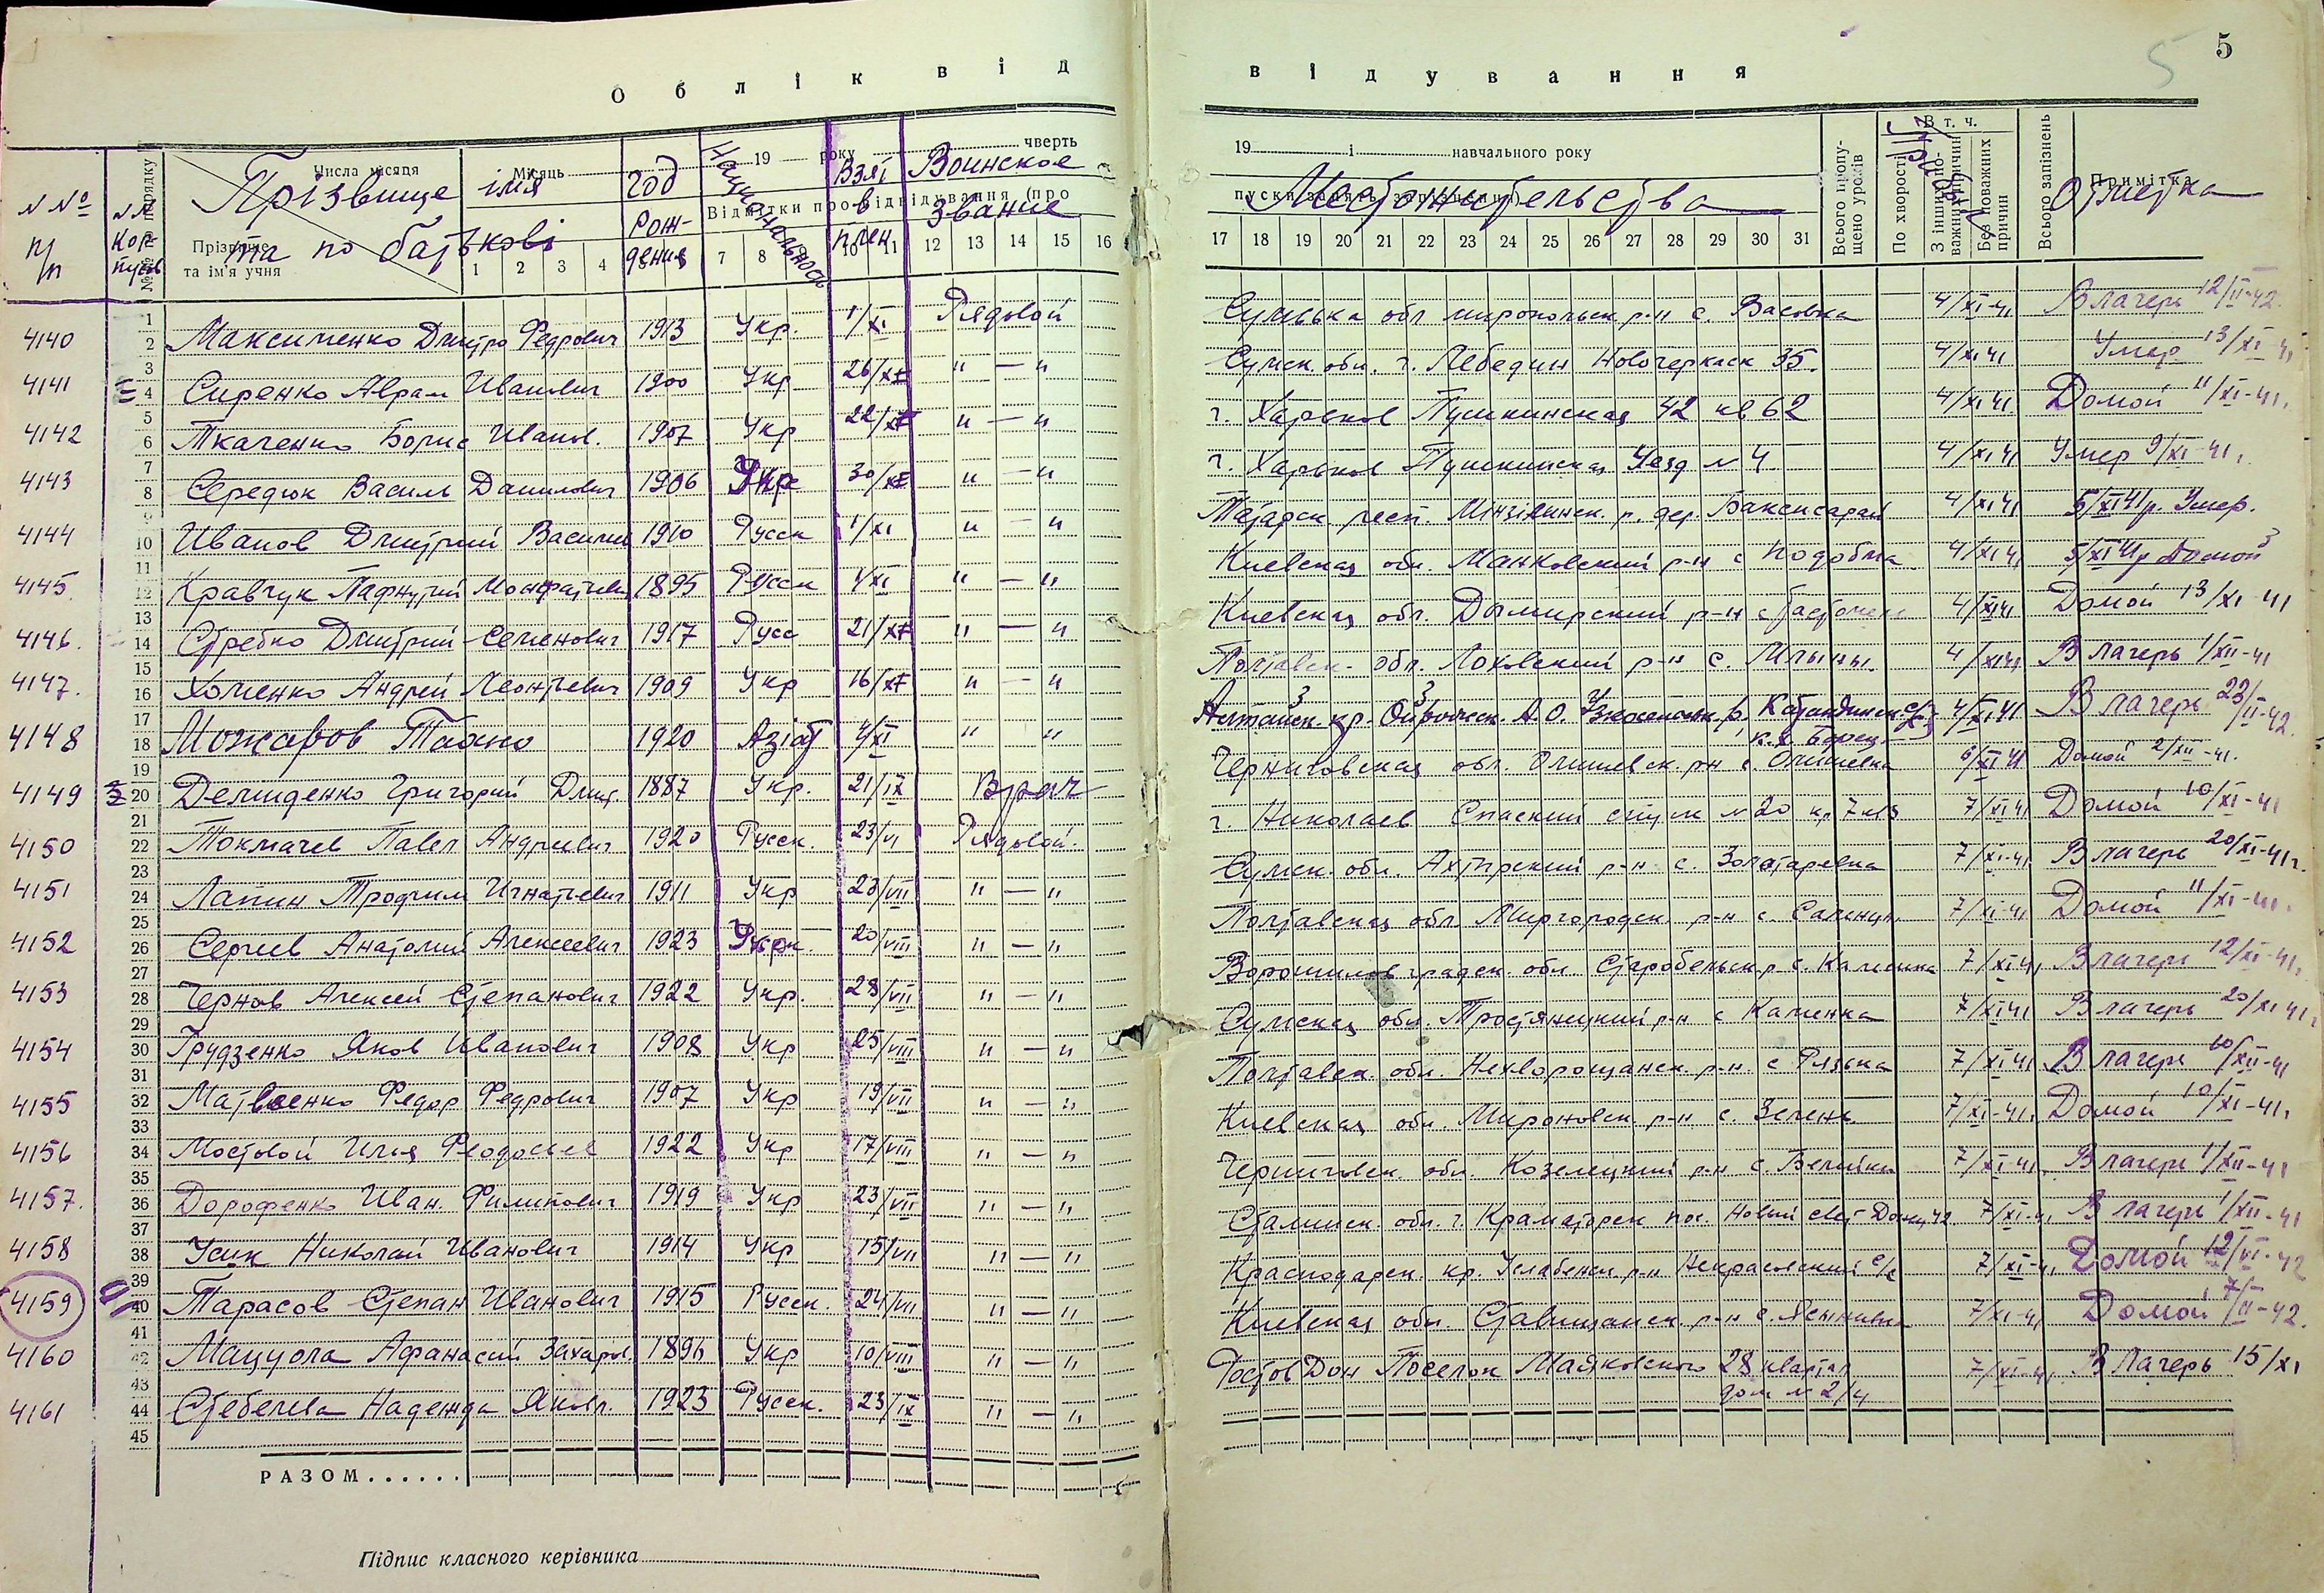 5 5
О б л і к в і д в і д у в а н н я
Числа місяця Місяць 19 року чверть 19 і навчального року
№ № п/п № № кор-пусів № № порядку Прізвище ім'я та по батькові год рож-дения Национальность Взят в плен Воинское звание Местожительства Отметка
Прізвище та ім'я учня Відмітки про відвідування (про пуски занять, запізнення) Всього пропу-щено уроків В т. ч. По хворості З інших по-важних причин Без поважних причин Всього запізнень Примітка
1 2 3 4 7 8 10 11 12 13 14 15 16 17 18 19 20 21 22 23 24 25 26 27 28 29 30 31
4140 Максименко Дмитро Федрович 1913 Укр. 1/XI Рядовой Сумська обл миропольск р-н с. Васовка 4/XI-41 В лагерь 12/II-42.
4141 Сиренко Аврам Иванович 1900 Укр 26/XI " — " Сумск. обл. г. Лебедин Новочеркаск 35. 4/XI 41 Умер 13/XI-41
4142 Ткаченко Борис Иванов. 1907 Укр 22/XI " — " г. Харьков Пушкинская 42 кв 62 4/XI 41 Домой 11/XI-41.
4143 Середюк Василь Данилович 1906 Укр 30/XI " — " г. Харьков Пушкинская Уезд № 4 4/XI 41 Умер 9/XI-41.
4144 Иванов Дмитрий Василии 1910 Русск 1/XI " — " Татарск респ. Мінзілинск. р. дер. Баксисарай 4/XI 41 5/XI 41 р. Умер.
4145. Кравчук Пафнутий 1895 Русск 4/XI " — " Киевская обл. Манковский р-н с Подобна 4/XI 41 5/XI 41 р Домой
4146. Стребко Дмитрий Семенович 1917 Русс 21/XI " — " Киевская обл. Дымирский р-н с 4/XI 41 Домой 13/XI-41
4147. Хоменко Андрей Леонтьевич 1909 Укр 16/XI " — " Полтавск. обл. Лохвский р-н с. Млыны. 4/XI 41 В лагерь 1/XII-41
4148 Можаров Таано 1920 Азіат 4/XI " " Алтайск. кр. А. О. р. 4/XI 41 В лагерь 23/II-42.
к. х. Борец
4149 Демиденко Григорий Дмит. 1887 Укр. 21/IX Врач Черниговская обл. Олишевск. р-н с. Олишевка 6/XI 41 Домой 2/XII-41.
4150 Токмачев Павел Андреевич 1920 Русск. 23/VI Рядовой. г. Николаев Спаский спуск № 20 7/XI 41 Домой 10/XI-41
4151 Лапин Трофим Игнатьевич 1911 Укр 23/VII " — " Сумск. обл. Ахтырский р-н с. Золотаревка 7/XI-41 В лагерь 20/XI-41 г.
4152 Сергеев Анатолий Алексеевич 1923 Укр. 20/VIII " — " Полтавская обл. Миргородск. р-н с. 7/XI-41 Домой 11/XI-41.
4153 Чернов Алексей Степанович 1922 Укр. 28/VII " — " Ворошиловградск. обл Старобельск р с. 7/XI 41 В лагерь 12/XI-41.
4154 Грудзенко Яков Иванович 1908 Укр 25/VIII " — " Сумская обл. Тростянецкий р-н с Каменка 7/XI 41 В лагерь 20/XI 41.
4155 Матвоенко Федор Федрович 1907 Укр 19/VII " — " Полтавск. обл. Нехворощанск. р-н. с Ряська 7/XI-41 В лагерь 10/XII-41
4156 Мостовой Илья Феодосьев 1922 Укр 17/VIII " — " Киевская обл. Мироновск. р-н с. Зелень. 7/XI-41. Домой 10/XI-41.
4157. Дорофенко Иван. Филипович 1919 Укр 23/VII " — " Чернговск. обл. Козелецкий р-н с. 7/XI-41. В лагерь 1/XII-41
4158 Усик Николай Иванович 1914 Укр 15/VII " — " Сталинск. обл. г. Краматорск пос. Новый свет 7/XI-41 В лагерь 1/XII-41
4159 Тарасов Степан Иванович 1915 Русск. 24/VII " — " Краснодарск. кр. Услабенск р-н Некрасовский с/с 7/XI-41 Домой 12/VI-42
4160 Мацуола Афанасий Захаров. 1896 Укр 10/VIII " — " Киевская обл. Ставищанск. р-н с. Ясыновка 7/XI-41 Домой 7/II-42.
4161 Стебелева Надежда Яковл. 1923 Русск. 23/IX " — " Ростов Дон Поселок Маяковского 28 квартал 7/XI-41. В лагерь 15/XI
дом № 2/4
РАЗОМ......
Підпис класного керівника